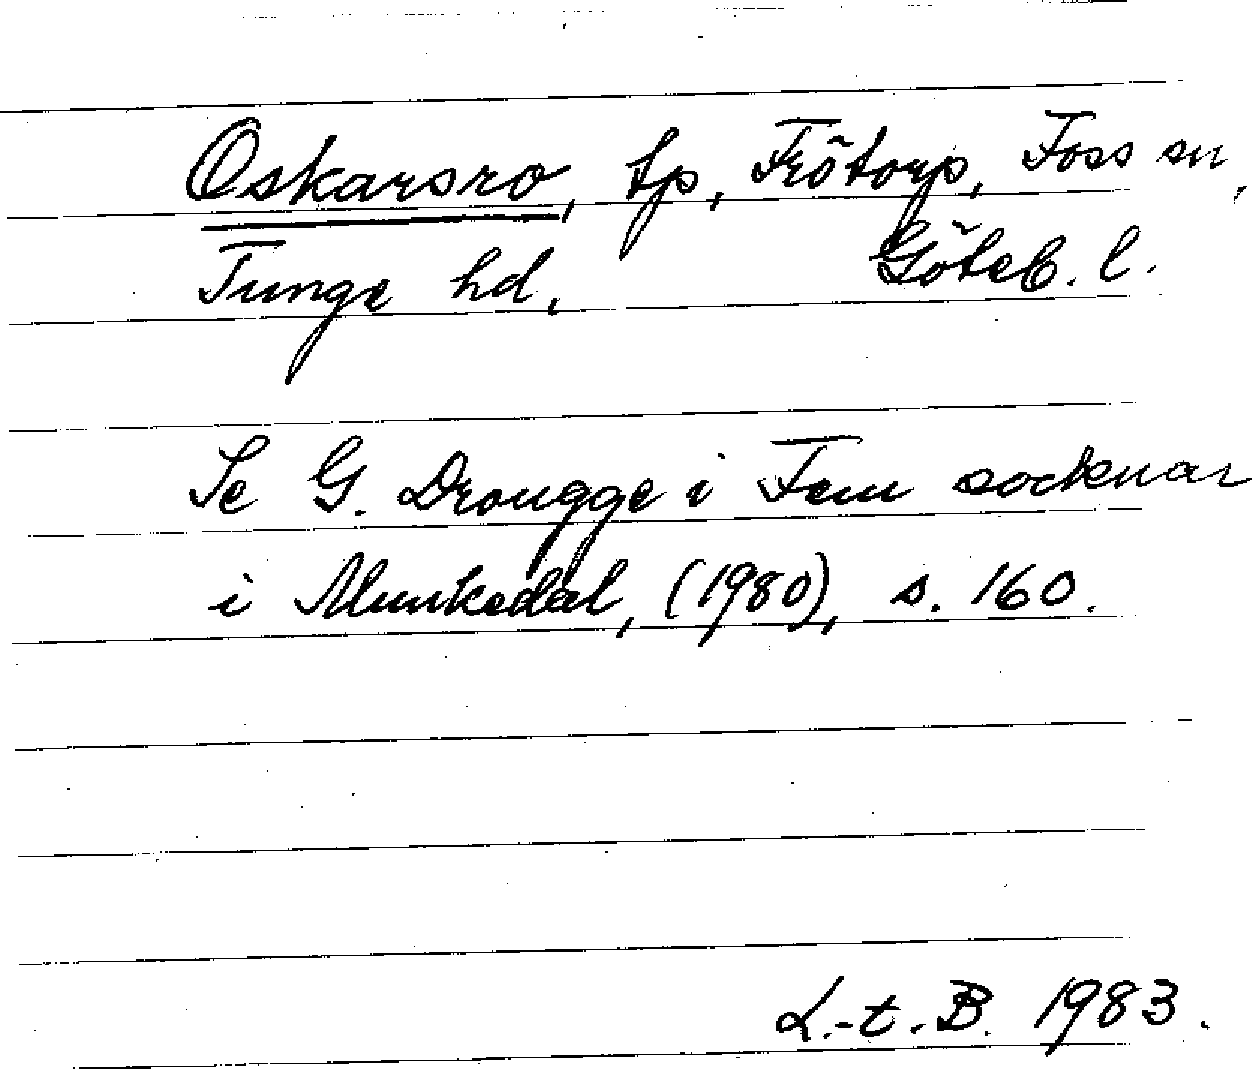 Oskarsro, tp, Frötorp, Foss sn,
Tunge hd, Göteb. l.
Se G. Drougge i Fem socknar
i Munkedal, (1980), s. 160.
L.-t. B. 1983.